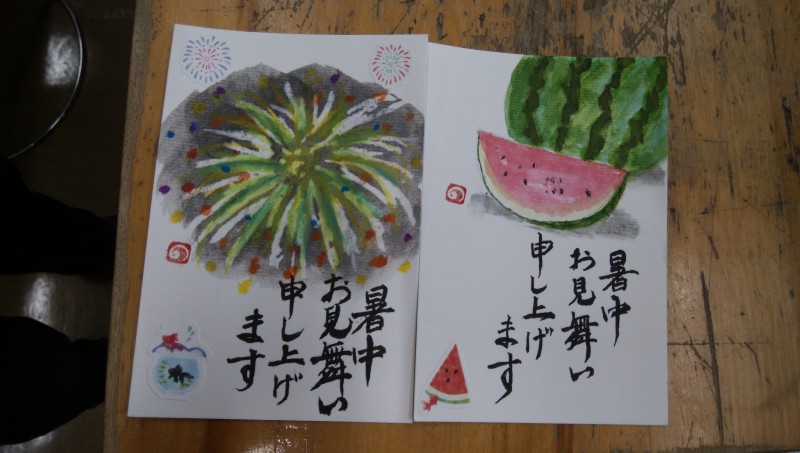 暑中
お見舞い
申し上げ
ます
暑中
お見舞い
申し上げ
ます